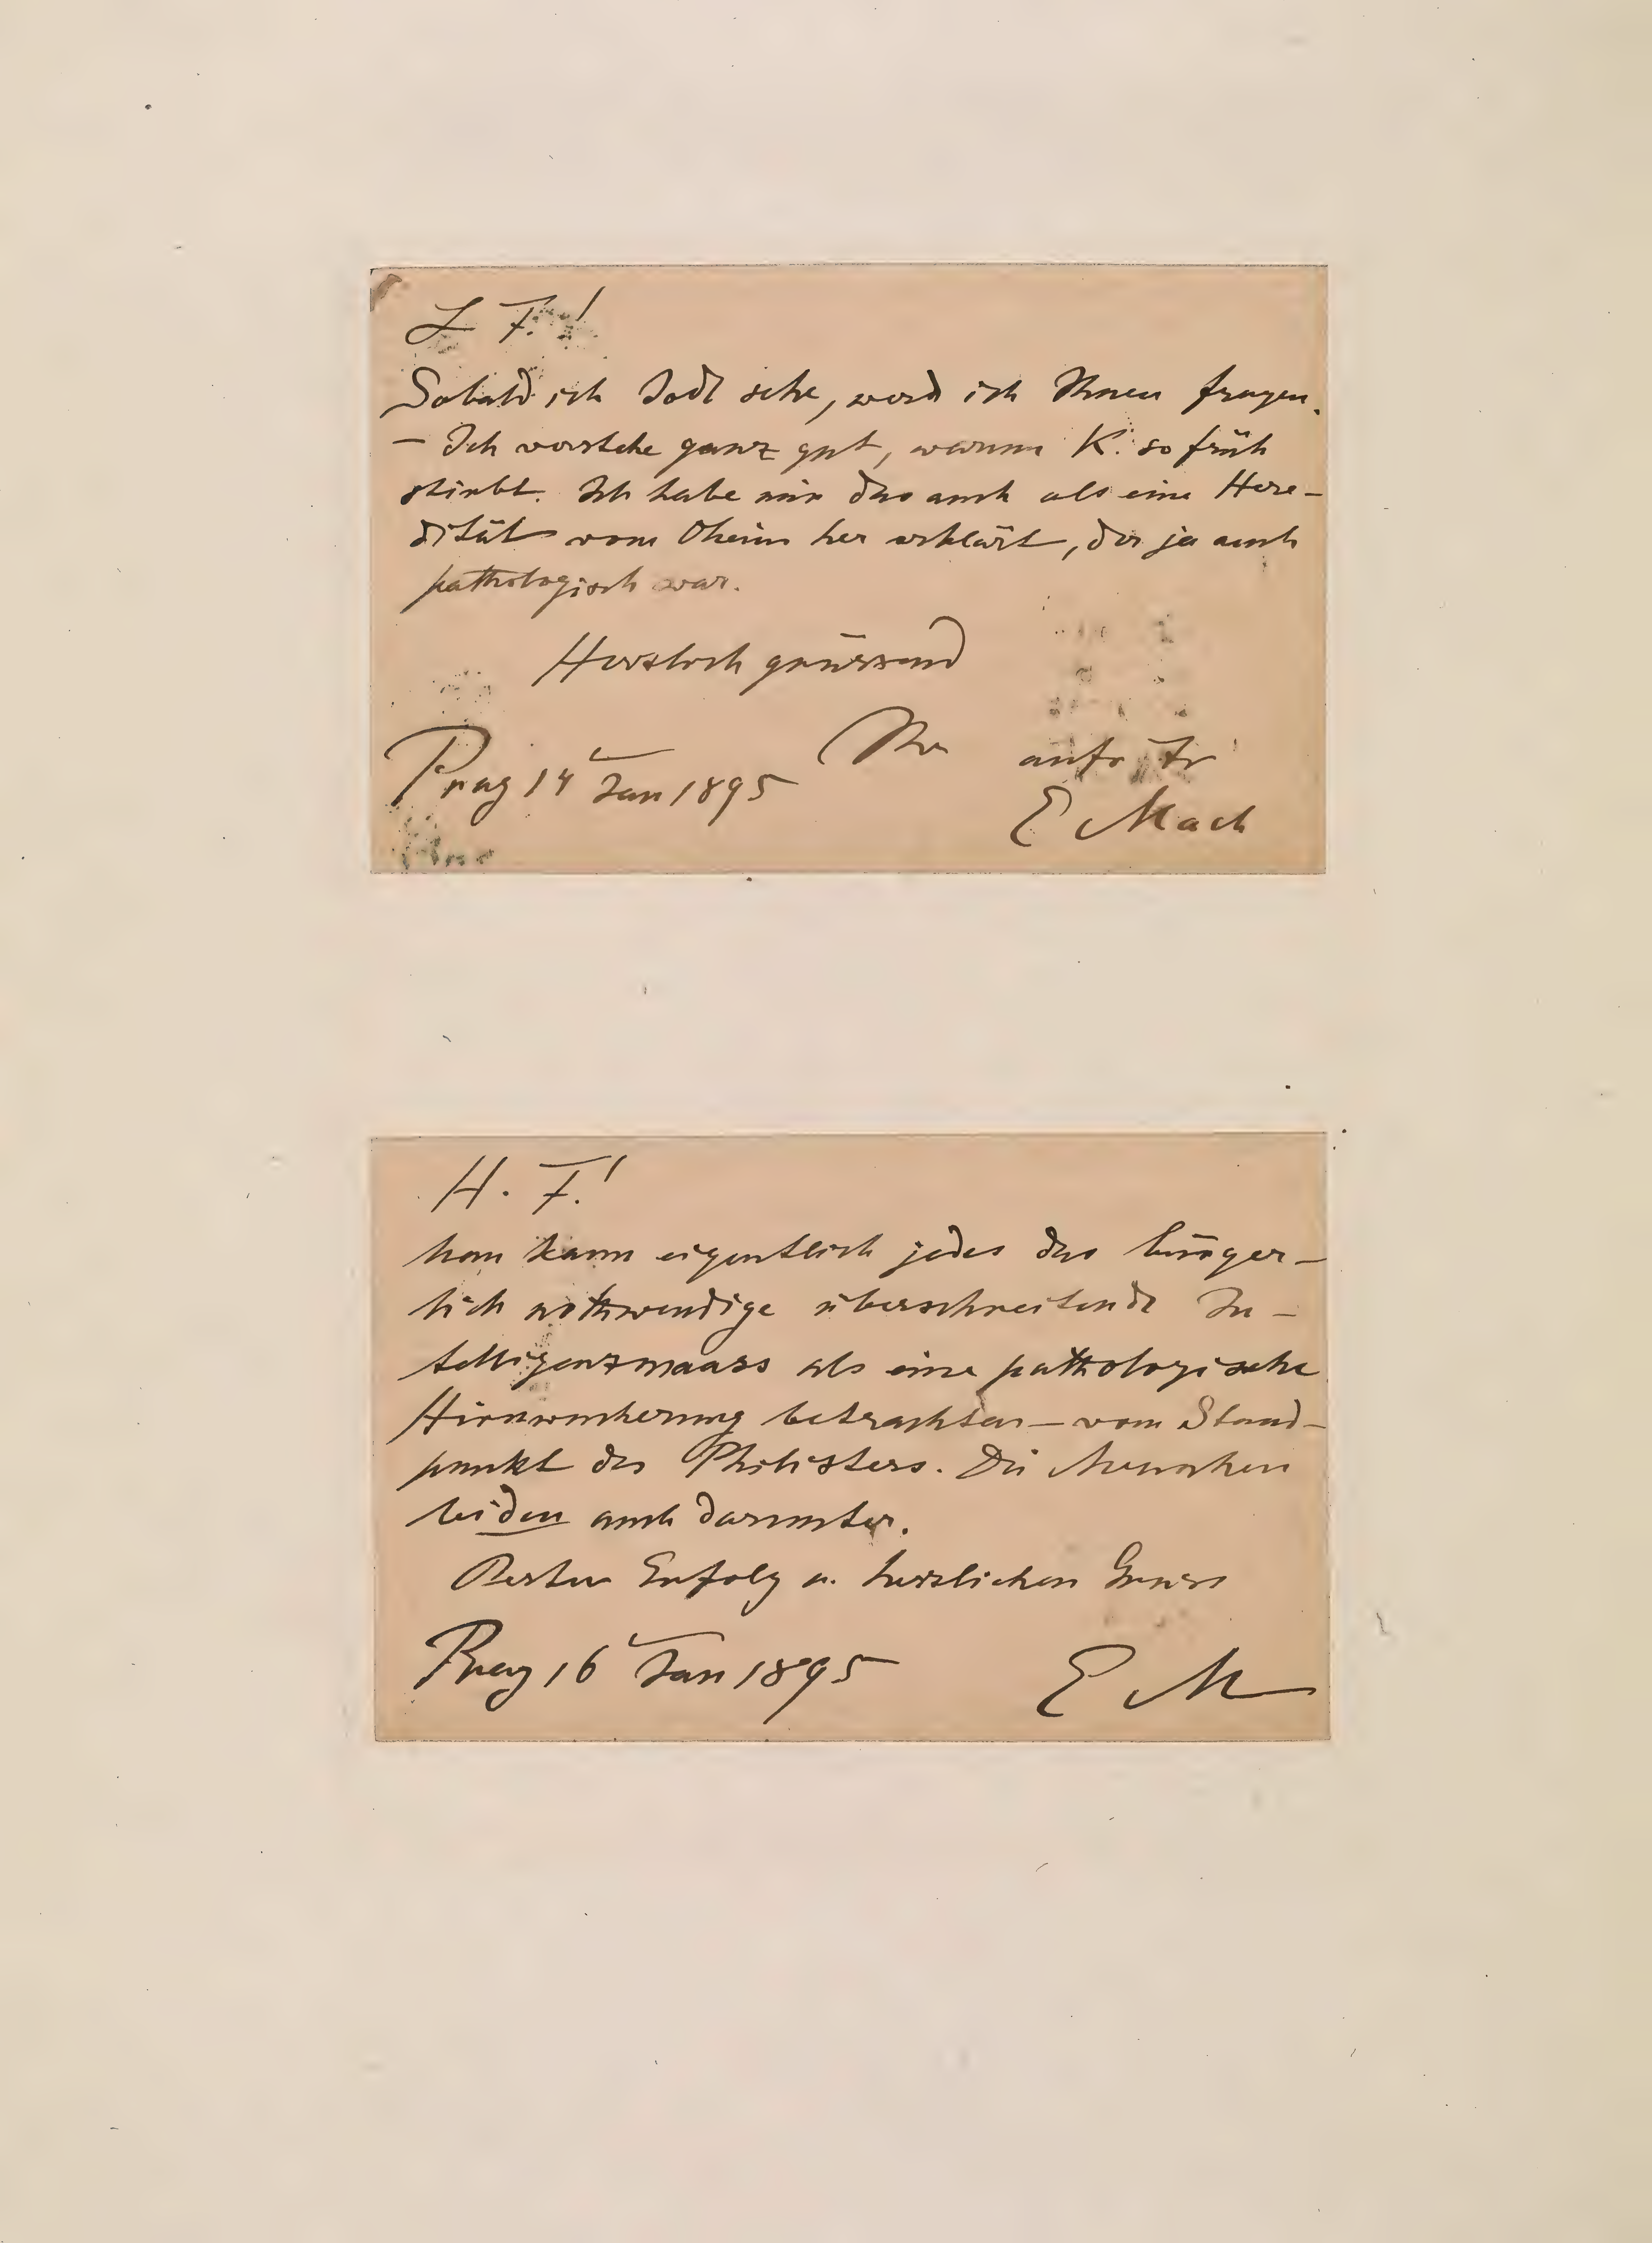 L F.!
Sobald ich Jodl sehe, werd ich Ihnen fragen.
— Ich verstehe ganz gut, warum K. so früh
stirbt. Ich habe mir das auch als eine Here-
dität vom Oheim her erklärt, der ja auch
pathologisch war.
Herzlich grüssend
Ihr aufr Fr
Prag 14 Jan 1895
E Mach
H. F.!
Man kann eigentlich jedes das bürger-
lich nothwendige überschreitende In-
telligenzmaass als eine pathologische
Hirnwucherung betrachten — vom Stand-
punkt des Philisters. Die Menschen
leiden auch darunter.
Besten Erfolg u. herzlichen Gruss
Prag 16 Jan 1895
E M